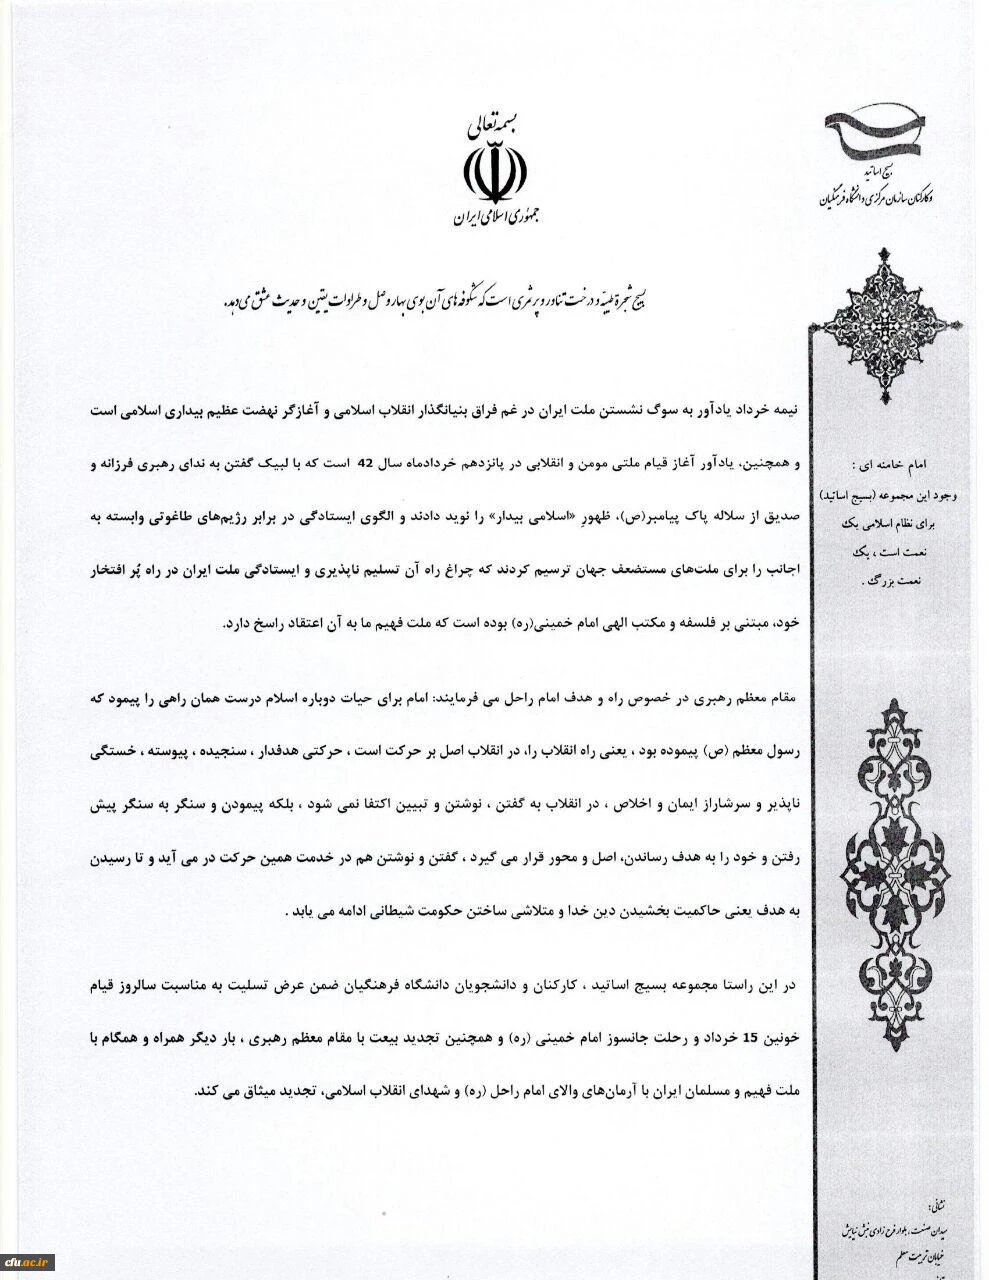 بسمه تعالی
جمهوری اسلامی ایران
بسیج اساتید
و کارکنان سازمان مرکزی دانشگاه فرهنگیان
بسیج شجرهٔ طیبه و درخت تناور و پر ثمری است که شکوفه های آن بوی بهار وصل و طراوات یقین و حدیث عشق می دهد.
نیمه خرداد یادآور به سوگ نشستن ملت ایران در غم فراق بنیانگذار انقلاب اسلامی و آغازگر نهضت عظیم بیداری اسلامی است
و همچنین، یادآور آغاز قیام ملتی مومن و انقلابی در پانزدهم خردادماه سال 42 است که با لبیک گفتن به ندای رهبری فرزانه و
صدیق از سلاله پاک پیامبر(ص)، ظهورِ «اسلامی بیدار» را نوید دادند و الگوی ایستادگی در برابر رژیم‌های طاغوتی وابسته به
اجانب را برای ملت‌های مستضعف جهان ترسیم کردند که چراغ راه آن تسلیم ناپذیری و ایستادگی ملت ایران در راه پُر افتخار
خود، مبتنی بر فلسفه و مکتب الهی امام خمینی(ره) بوده است که ملت فهیم ما به آن اعتقاد راسخ دارد.
مقام معظم رهبری در خصوص راه و هدف امام راحل می فرمایند: امام برای حیات دوباره اسلام درست همان راهی را پیمود که
رسول معظم (ص) پیموده بود ، یعنی راه انقلاب را، در انقلاب اصل بر حرکت است ، حرکتی هدفدار ، سنجیده ، پیوسته ، خستگی
ناپذیر و سرشاراز ایمان و اخلاص ، در انقلاب به گفتن ، نوشتن و تبیین اکتفا نمی شود ، بلکه پیمودن و سنگر به سنگر پیش
رفتن و خود را به هدف رساندن، اصل و محور قرار می گیرد ، گفتن و نوشتن هم در خدمت همین حرکت در می آید و تا رسیدن
به هدف یعنی حاکمیت بخشیدن دین خدا و متلاشی ساختن حکومت شیطانی ادامه می یابد .
در این راستا مجموعه بسیج اساتید ، کارکنان و دانشجویان دانشگاه فرهنگیان ضمن عرض تسلیت به مناسبت سالروز قیام
خونین 15 خرداد و رحلت جانسوز امام خمینی (ره) و همچنین تجدید بیعت با مقام معظم رهبری ، بار دیگر همراه و همگام با
ملت فهیم و مسلمان ایران با آرمان‌های والای امام راحل (ره) و شهدای انقلاب اسلامی، تجدید میثاق می کند.
امام خامنه ای :
وجود این مجموعه (بسیج اساتید)
برای نظام اسلامی یک
نعمت است ، یک
نعمت بزرگ .
نشانی:
میدان صنعت، بلوار فرح زادی نبش نیایش
خیابان تربیت معلم
cfu.ac.ir